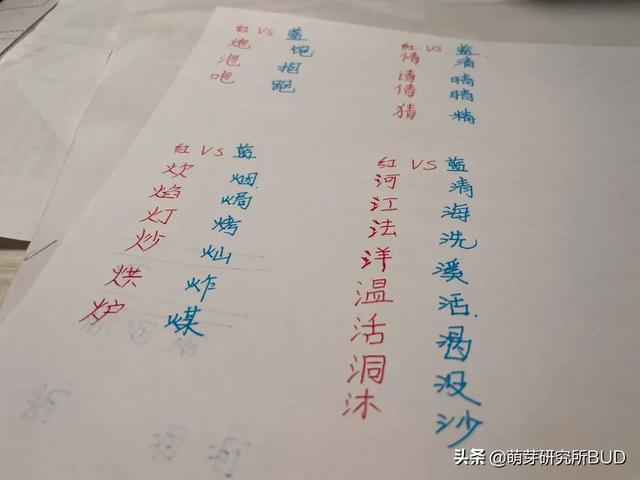 红 VS 蓝
炮 饱
泡 抱
咆 跑
红 VS 蓝
情 清
请 晴
倩 睛
猜 精
红 VS 蓝
炊 烟
焰 焗
灯 烤
炒 灿
烘 炸
炉 煤
红 VS 蓝
河 清
江 海
法 洗
洋 溪
温 活
活 渴
洞 没
沐 沙
头条 @萌芽研究所BUD